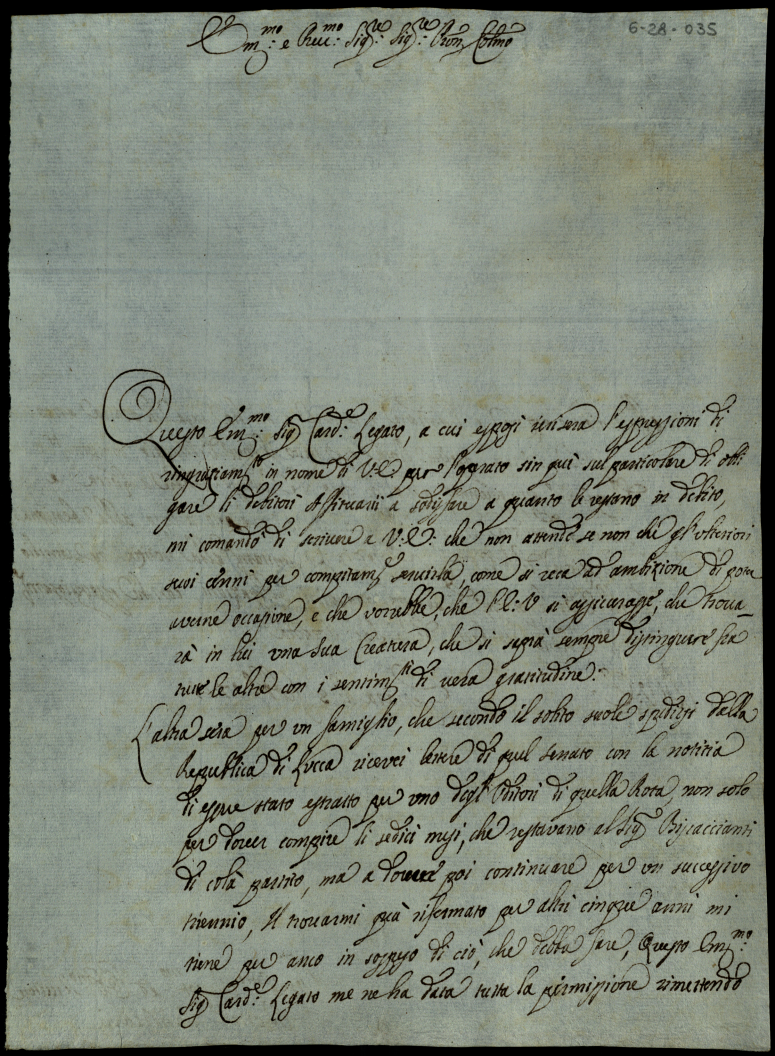 6-28-035
Em.mo e Rev.mo Sig.re Sig.re Pron Colmo
Questo Em.mo Sig. Card.e Legato, a cui esposi ieri sera l'espressioni di
ringraziam.to in nome di V: E: per l'operato sin qui sul particolare di obli
gare li debitori Affituarii a sodisfare a quanto le restano in debito,
mi comandò di scrivere a V: E: che non attende se non che gl'ulteriori
suoi cenni per compitam.te servirla, come si reca ad ambizione di poter
averne occasione, e che vorrebbe, che l'E: V si assicurasse, che trova=
rà in lui una sua Creatura, che si saprà sempre distinguere fra
tutte le altre con i sentim.ti di vera gratitudine:
L'altra sera per un famiglio, che secondo il solito suole spedirsi dalla
Republica di Lucca ricevei lettere di quel Senato con la notitia
di essere stato estratto per uno degl'Uditori di quella Rota, non solo
per dover compire li sedici mesi, che restavano al Sig. Biscaccianti
di colà partito, ma a dover poi continuare per un successivo
triennio, Il trovarmi già rifermato per altri cinque anni mi
tiene per anco in sospeso di ciò, che debba fare, Questo Em.mo
Sig. Card.e Legato me ne ha data tutta la permissione rimettendo